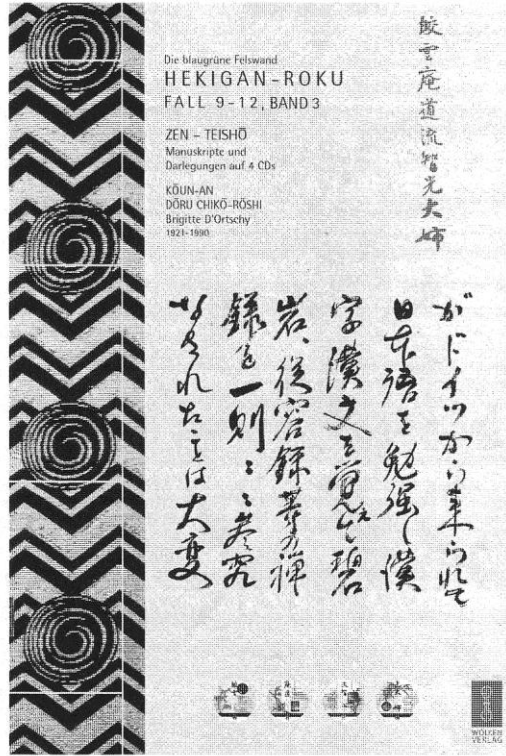 Die blaugrüne Felswand
HEKIGAN-ROKU
FALL 9-12, BAND 3
ZEN – TEISHŌ
Manuskripte und
Darlegungen auf 4 CDs
KŌUN-AN
DŌRU CHIKŌ-RŌSHI
Brigitte D'Ortschy
1921-1990
雲庵道流智光大姉
がドイツから来られて
日本語を勉強し漢
字漢文を覚え碧
岩、従容録等の禅
録を一則〻〻参究
なされたことは大変
WOLKEN
VERLAG